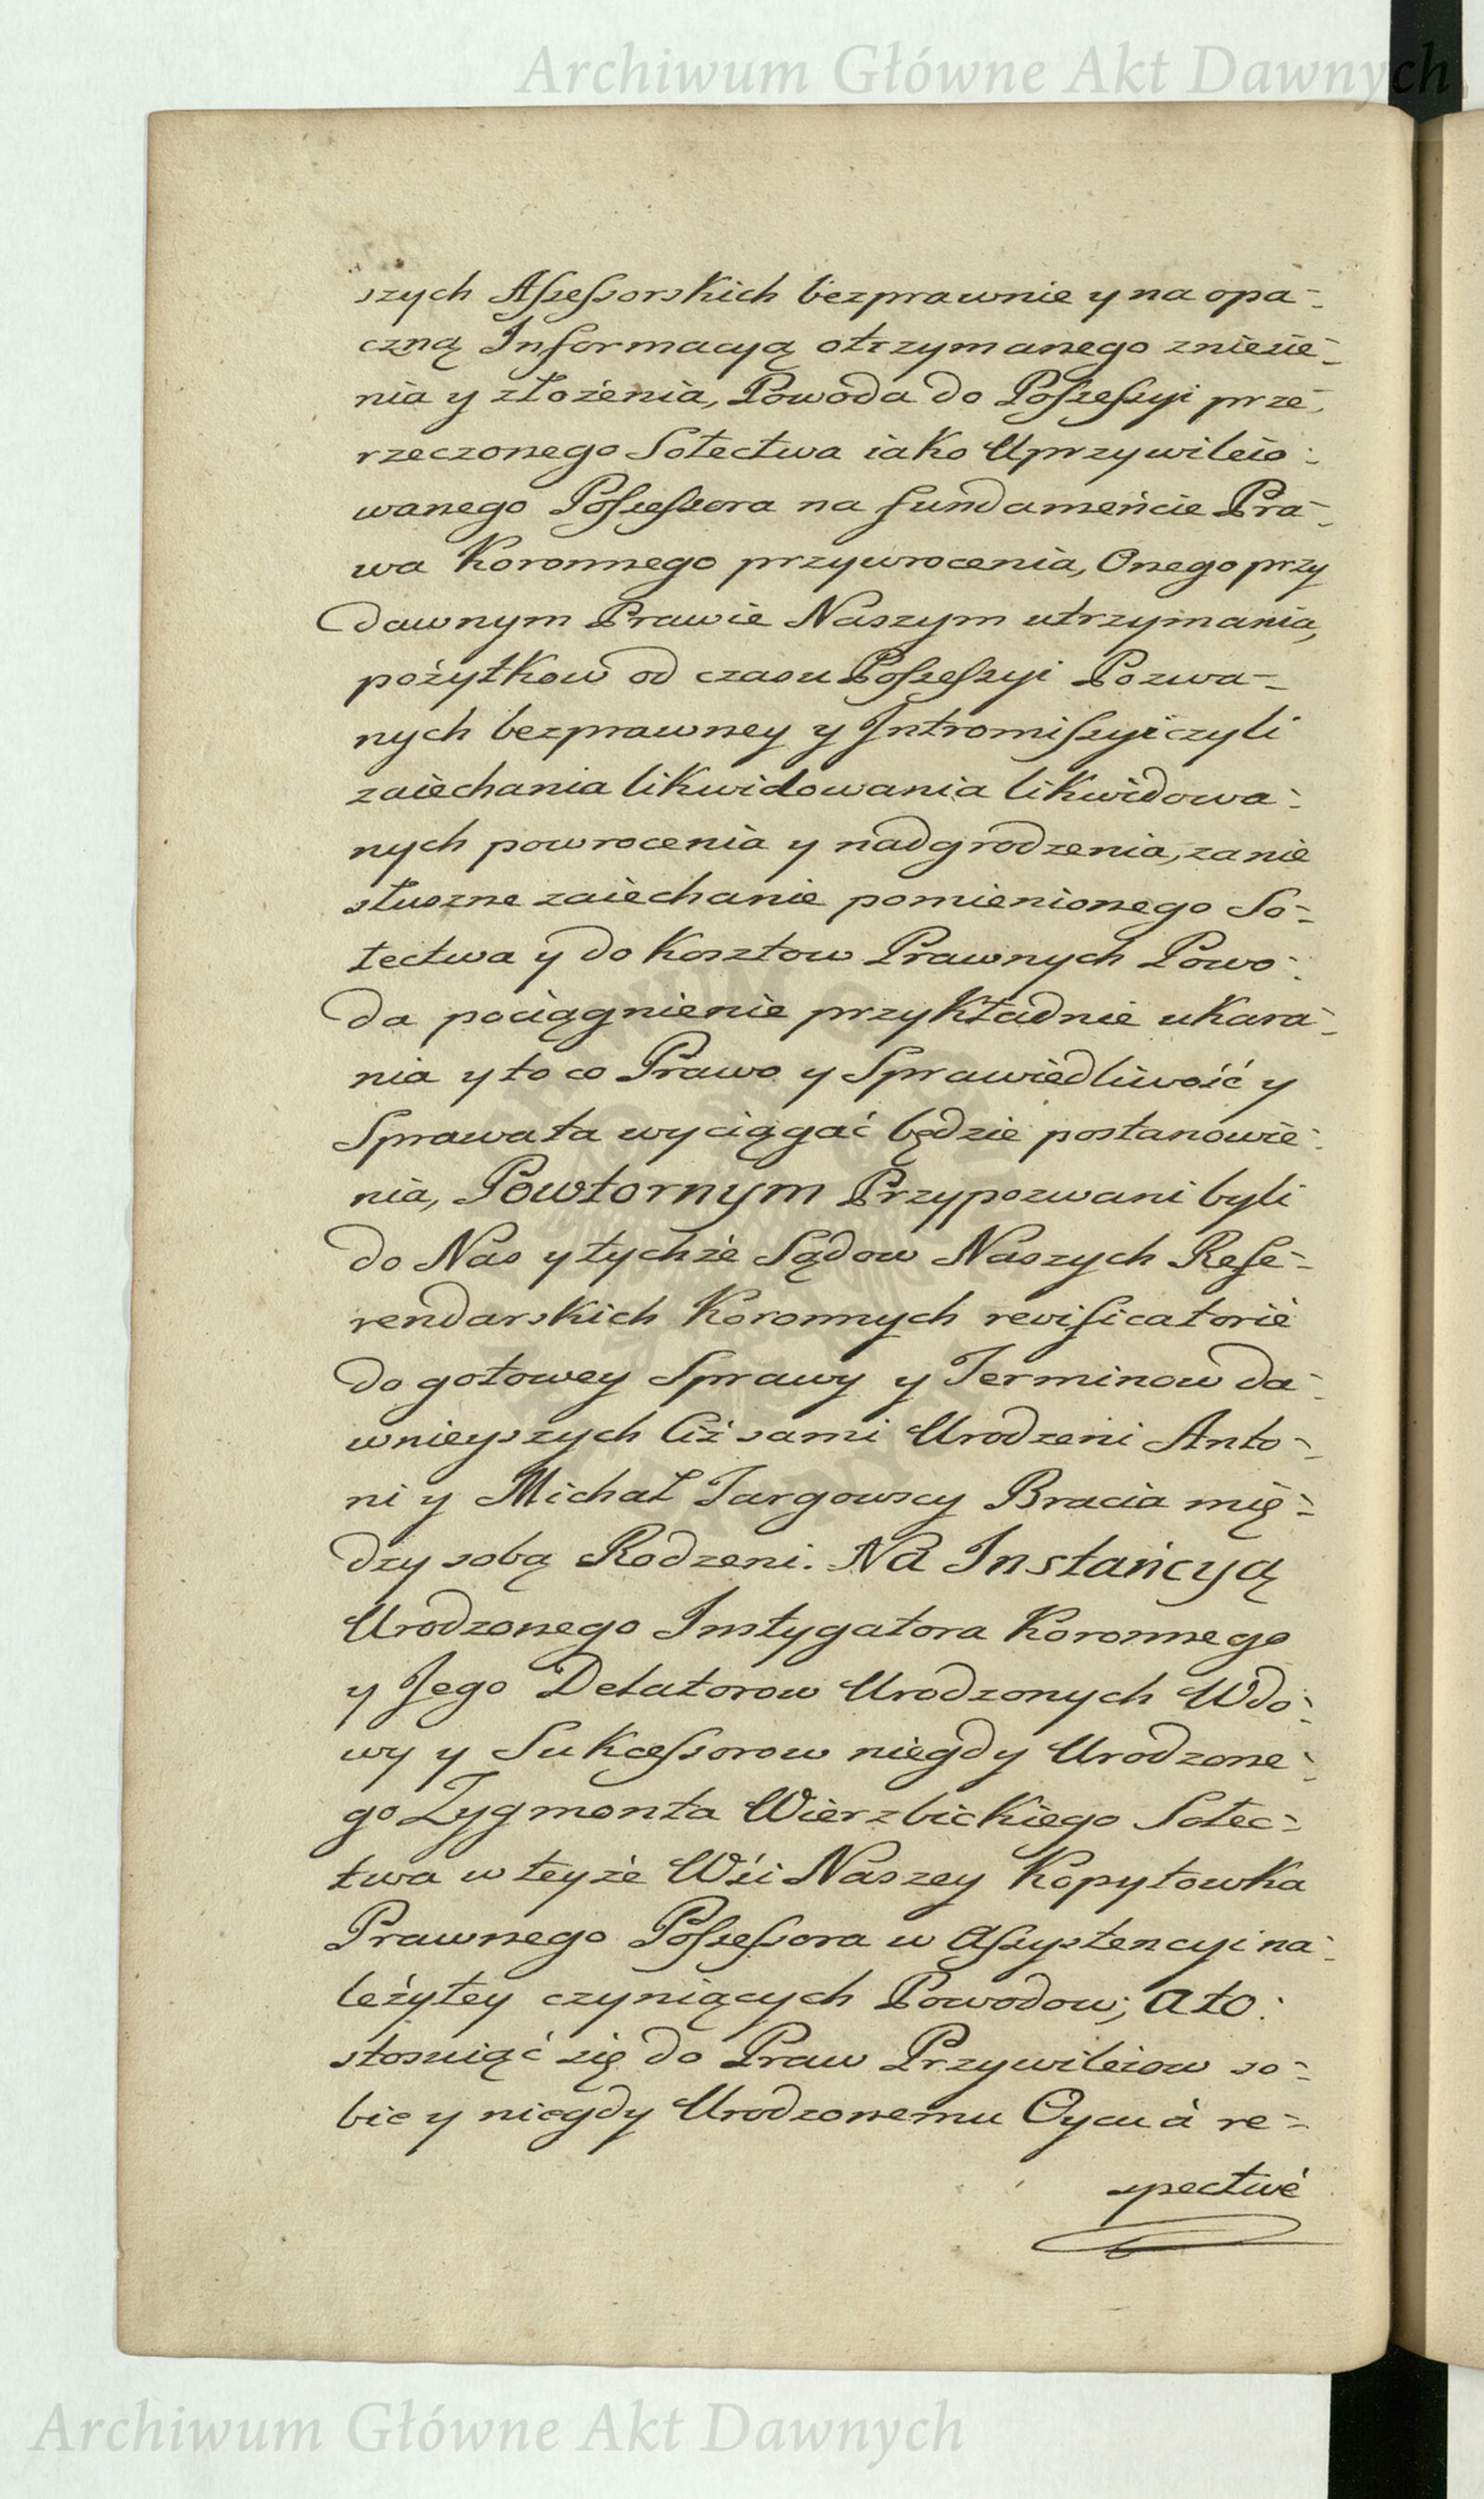 Archiwum Główne Akt Dawnych
szych Assessorskich bezprawnie y na opa-
czną Informacyą otrzymanego zniesie-
nia y złożenia, Powoda do Possessyi prze-
rzeczonego Sołectwa iako Uprzywileio-
wanego Possessora na fundamencie Pra-
wa Koronnego przywrocenia, Onego przy
dawnym Prawie Naszym utrzymania,
pożytkow od czasu Possessyi Pozwa-
nych bezprawney y Intromissyi czyli
zaiechania likwidowania likwidowa-
nych powrocenia y nadgrodzenia, za nie
słuszne zaiechanie pomienionego So-
łectwa y do Kosztow Prawnych Powo-
da pociągnienie przykładnie ukara-
nia y to co Prawo y Sprawiedliwość y
Sprawa ta wyciągać będzie postanowie-
nia, Powtornym Przypozwani byli
do Nas y tychże Sądow Naszych Refe-
rendarskich Koronnych reivificatorie
do gotowey Sprawy y Terminow da-
wnieyszych Ciż sami Urodzeni Anto-
ni y Michał Targowscy Bracia mię-
dzy sobą Rodzeni. Na Instancyą
Urodzonego Instygatora Koronnego
y Jego Delatorow Urodzonych Wdo-
wy y Sukcessorow niegdy Urodzone-
go Zygmonta Wierzbickiego Sołec-
twa w teyże Wsi Naszey Kopytowka
Prawnego Possessora w Assystencyi na-
leżytey czyniących Powodow; a to:
stosuiąć się do Praw Przywileiow so-
bie y niegdy Urodzonemu Oycu à re-
spectivè
Archiwum Główne Akt Dawnych